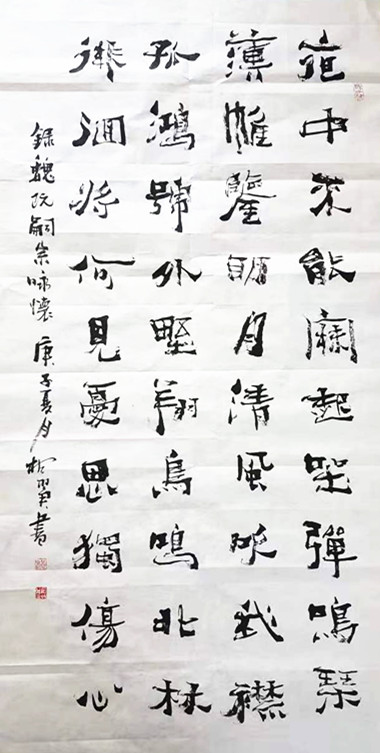 夜中不能寐起坐彈鳴琴
薄帷鑒明月清風吹我襟
孤鴻號外野翔鳥鳴北林
徘徊將何見憂思獨傷心
錄魏阮嗣宗咏懷 庚子夏月 書